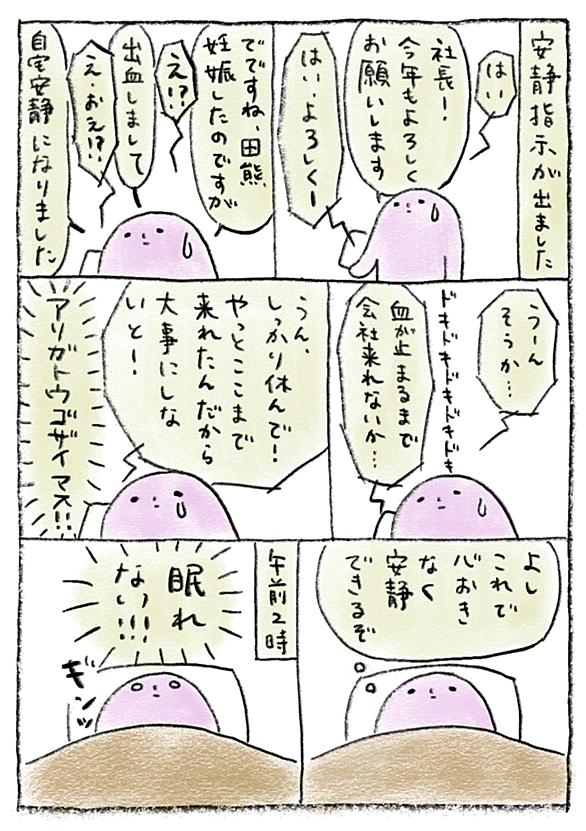 安静指示が出ました
はい
社長!
今年もよろしく
お願いします
はい、よろしくー
でですね、田熊、
妊娠したのですが
え!?
出血しまして
え、おぇ!?
自宅安静になりました
うーん
そうか…
ドキドキドキドキドキ
血が止まるまで
会社来れないか…
うん、
しっかり休んで!
やっとここまで
来れたんだから
大事にしな
いと!
アリガトウゴザイマス!!
よし
これで
心おき
なく
安静
できるぞ
午前2時
眠れ
なぃ!!!
ギンッ